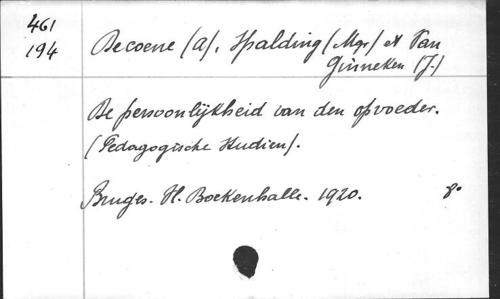 461
194
Decoene (A), Spalding (Mgr) et Van
Ginneken (J.)
De persoonlijkheid van den opvoeder.
(Pedagogische Studien).
Bruges. H. Boekenhalle. 1920. 8°